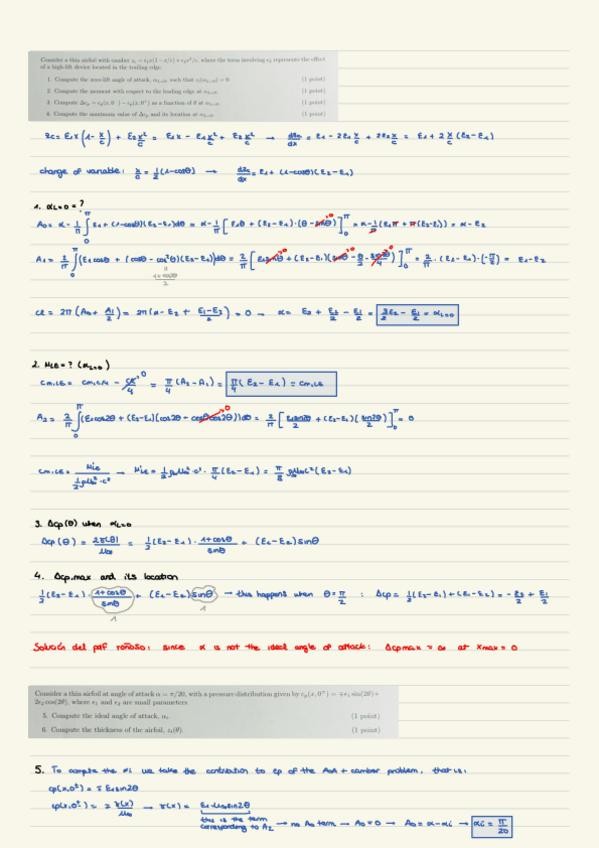 Consider a thin airfoil with camber z_c = ε₁x(1 − x/c) + ε₂x²/c, where the term involving ε₂ represents the effect
of a high-lift device located in the trailing edge.
1. Compute the zero-lift angle of attack, α_{L=0}, such that c_l(α_{L=0}) = 0. (1 point)
2. Compute the moment with respect to the leading edge at α_{L=0}. (1 point)
3. Compute Δc_p = c_p(x, 0⁻) − c_p(x, 0⁺) as a function of θ at α_{L=0}. (1 point)
4. Compute the maximum value of Δc_p and its location at α_{L=0}. (1 point)
zc = ε₁x(1 − x/c) + ε₂ x²/c = ε₁x − ε₁x²/c + ε₂ x²/c → dzc/dx = ε₁ − 2ε₁ x/c + 2ε₂ x/c = ε₁ + 2 x/c (ε₂ − ε₁)
change of variable: x/c = 1/2 (1 − cosθ) → dzc/dx = ε₁ + (1 − cosθ)(ε₂ − ε₁)
1. α_{L=0} = ?
A₀ = α − 1/π ∫₀^π ε₁ + (1 − cosθ)(ε₂ − ε₁)dθ = α − 1/π [ε₁θ + (ε₂ − ε₁)·(θ − sinθ)]₀^π = α − 1/π (ε₁π + π(ε₂ − ε₁)) = α − ε₂
A₁ = 2/π ∫₀^π (ε₁cosθ + (cosθ − cos²θ)(ε₂ − ε₁))dθ = 2/π [ε₁sinθ + (ε₂ − ε₁)(sinθ − θ/2 − sin2θ/4)]₀^π = 2/π · (ε₂ − ε₁)·(−π/2) = ε₁ − ε₂
1 + cos2θ
2
cl = 2π(A₀ + A₁/2) = 2π(α − ε₂ + (ε₁ − ε₂)/2) = 0 → α = ε₂ + ε₂/2 − ε₁/2 = 3ε₂/2 − ε₁/2 = α_{L=0}
2. M_LE = ? (α_{L=0})
cm,LE = cm,c/4 − cl/4 = π/4 (A₂ − A₁) = π/4 (ε₂ − ε₁) = cm,LE
A₂ = 2/π ∫₀^π (ε₁cos2θ + (ε₂ − ε₁)(cos2θ − cosθcos2θ))dθ = 2/π [ε₁sin2θ/2 + (ε₂ − ε₁)(sin2θ/2)]₀^π = 0
cm,LE = M'LE / (1/2 ρU∞²·c²) → M'LE = 1/2 ρU∞²·c²· π/4 (ε₂ − ε₁) = π/8 ρU∞²c²(ε₂ − ε₁)
3. Δcp(θ) when α_{L=0}
Δcp(θ) = 2γ(θ)/U∞ = 1/2 (ε₂ − ε₁)· (1 + cosθ)/sinθ + (ε₁ − ε₂)sinθ
4. Δcp,max and its location
1/2 (ε₂ − ε₁)· (1 + cosθ)/sinθ + (ε₁ − ε₂)sinθ → this happens when θ = π/2 : Δcp = 1/2 (ε₂ − ε₁) + (ε₁ − ε₂) = −ε₂/2 + ε₁/2
1 1
Solución del pdf roñoso: since α is not the ideal angle of attack: Δcpmax = ∞ at xmax = 0
Consider a thin airfoil at angle of attack α = π/20, with a pressure distribution given by c_p(x, 0^±) = ∓ε₁ sin(2θ) +
2ε₂ cos(2θ), where ε₁ and ε₂ are small parameters
5. Compute the ideal angle of attack, α_i. (1 point)
6. Compute the thickness of the airfoil, z_t(θ). (1 point)
5. To compute the αi we take the contribution to cp of the AoA + camber problem, that is:
cp(x,0^±) = ∓ ε₁ sin2θ
cp(x,0^±) = ∓ γ(x)/U∞ → γ(x) = ε₁·U∞sin2θ
this is the term
corresponding to A₂ → no A₀ term → A₀ = 0 → A₀ = α − αi → αi = π/20